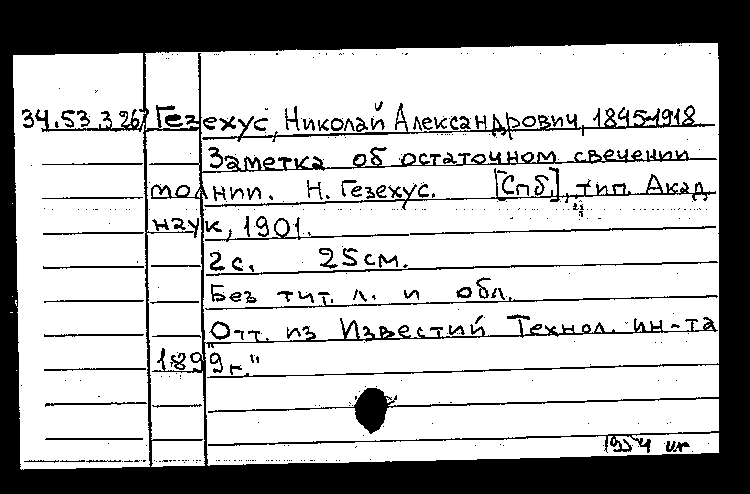 34.53.3267 Гезехус, Николай Александрович, 1845-1918
Заметка об остаточном свечении
молнии. Н. Гезехус. [Спб.], тип. Акад.
наук, 1901.
2 с. 25 см.
Без тит. л. и обл.
Отт. из Известий Технол. ин-та
1899 г."
1954 иг